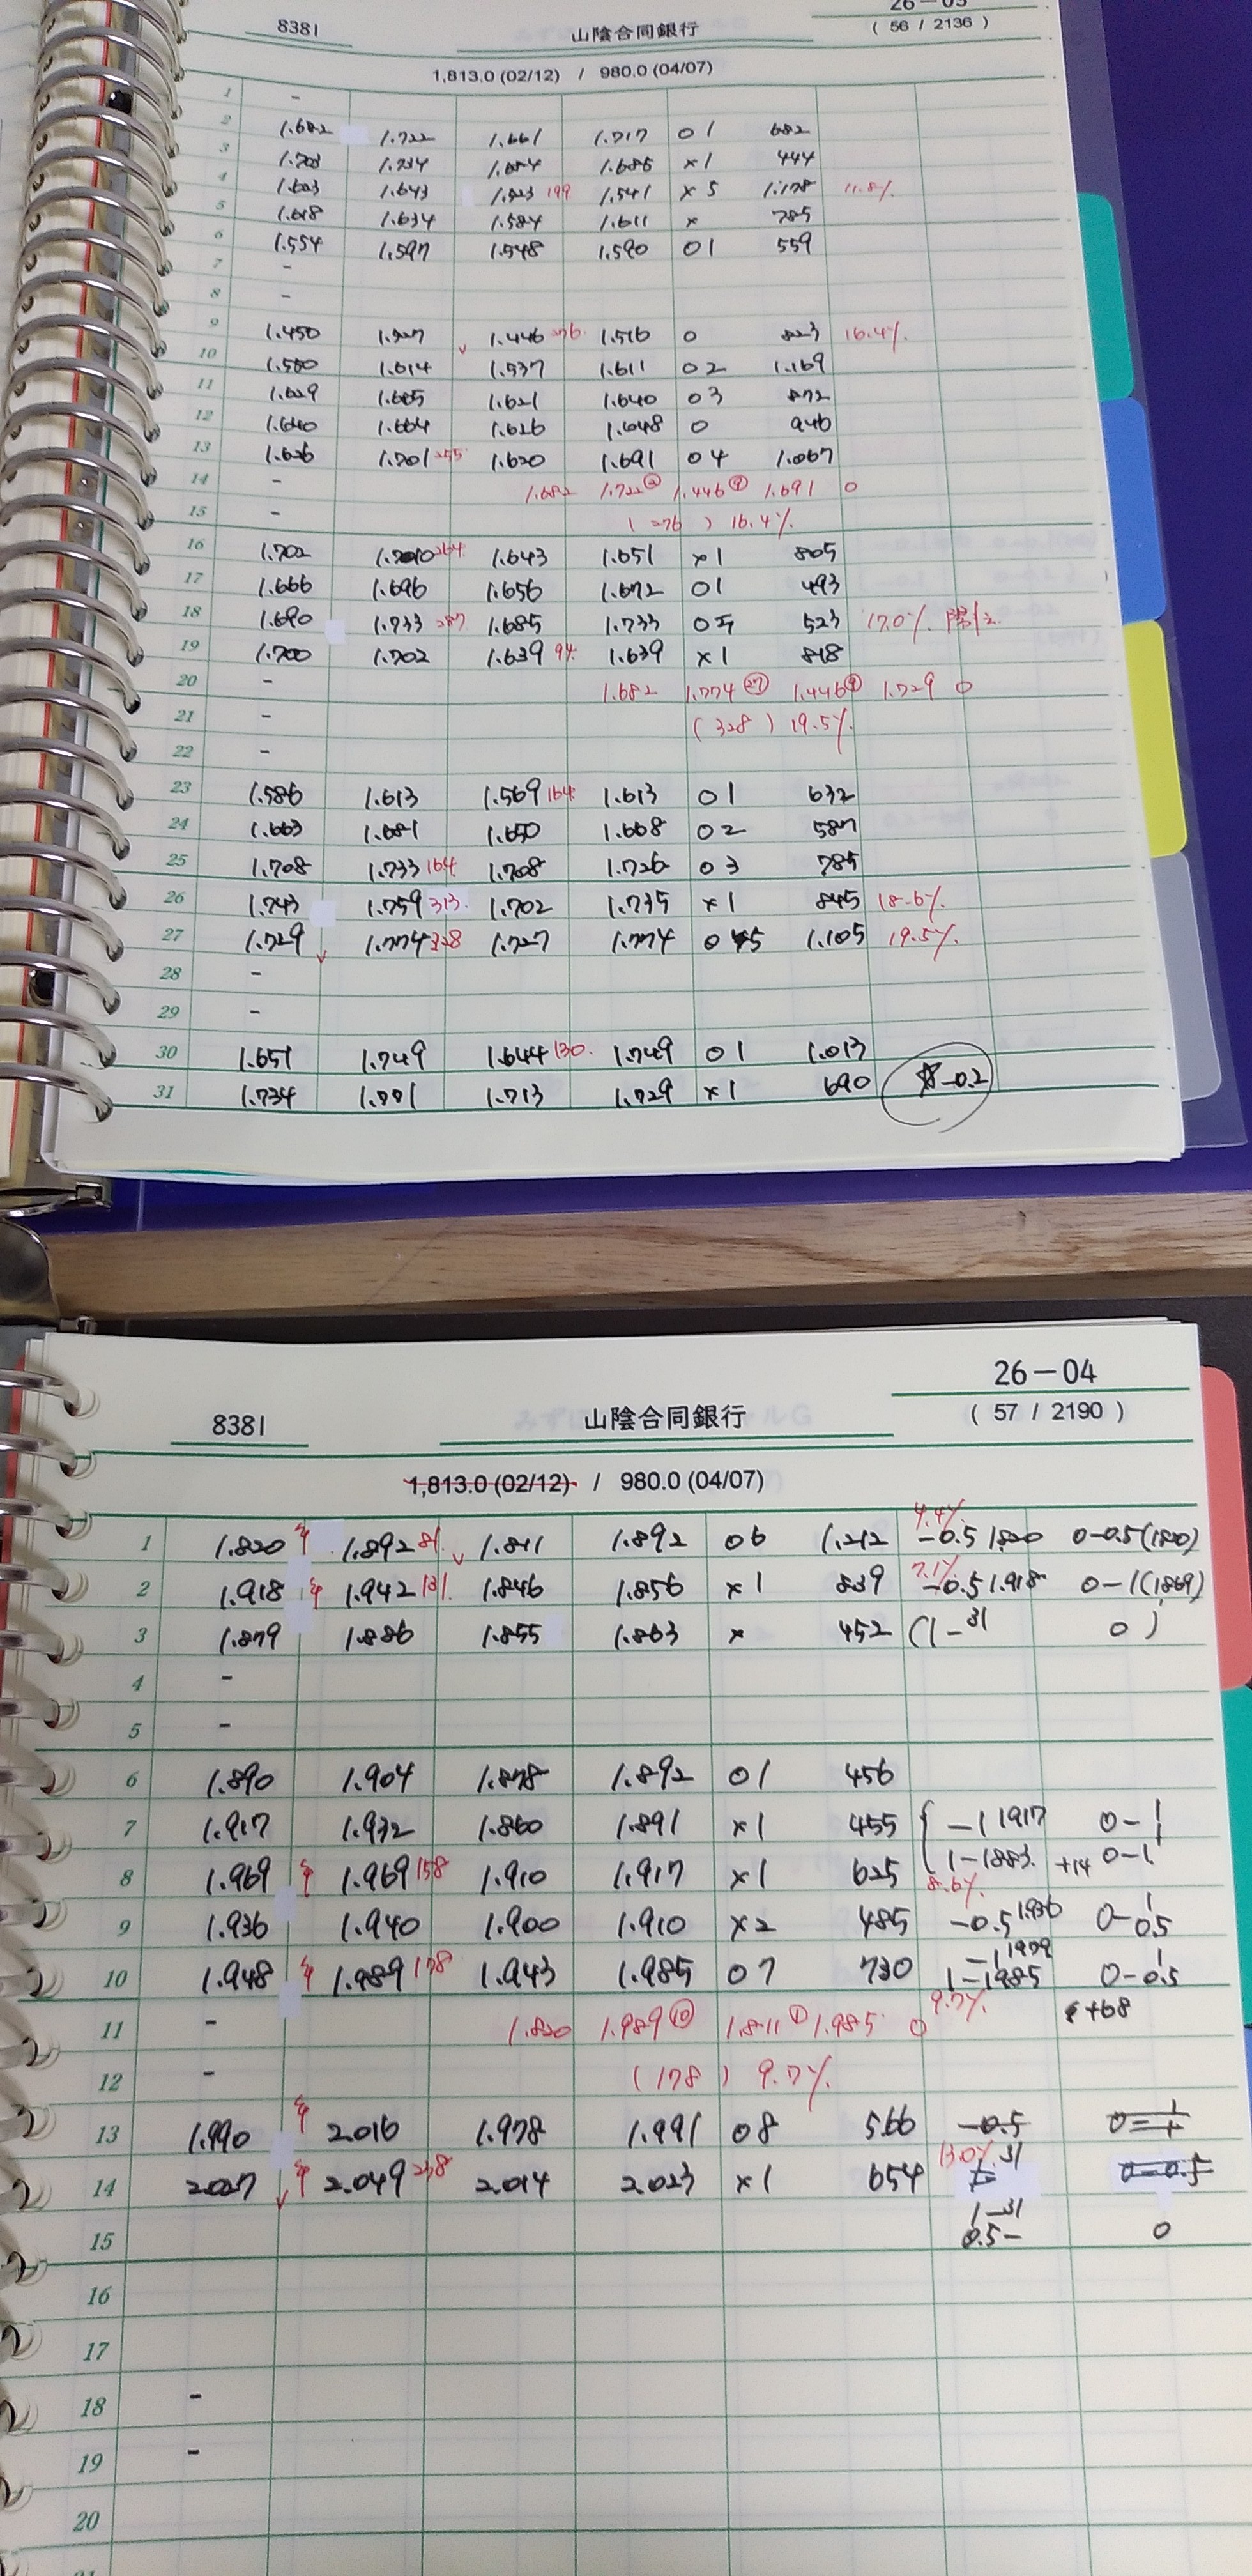 26-03
8381 山陰合同銀行 ( 56 / 2136 )
1,813.0 (02/12) / 980.0 (04/07)
1 -
2 1.682 1.722 1.661 1.717 01 682
3 1.734 1.685 ×1 444
4 1.643 199 1.541 ×5 1.178 11.8%
5 1.618 1.634 1.584 1.611 × 785
6 1.554 1.597 1.548 1.590 01 559
7 -
8 -
9 1.450 1.446 276 1.516 0 823 16.4%
10 1.580 1.614 1.537 1.611 02 1.169
11 1.629 1.665 1.621 1.640 03 872
12 1.640 1.664 1.626 1.648 0 946
13 1.626 1.701 255 1.620 1.691 04 1.067
14 - 1.682 1.722② 1.446⑨ 1.691 0
15 - (276) 16.4%
16 1.702 264 1.643 1.651 ×1 805
17 1.666 1.696 1.656 1.672 01 493
18 1.690 1.733 287 1.685 1.733 05 523 17.0%
19 1.700 1.702 1.639 94 1.639 ×1 818
20 - 1.682 1.774㉗ 1.446⑨ 1.729 0
21 - (328) 19.5%
22 -
23 1.586 1.613 1.569 164 1.613 01 632
24 1.663 1.681 1.650 1.668 02 587
25 1.708 1.733 164 1.708 1.726 03 785
26 1.743 1.759 313 1.702 1.735 ×1 845 18.6%
27 1.729 1.774 328 1.727 1.774 0 5 1.105 19.5%
28 -
29 -
30 1.651 1.749 1.644 130 1.749 01 1.013
31 1.734 1.771 1.713 1.729 ×1 690 -0.2
26-04
8381 山陰合同銀行 ( 57 / 2190 )
1,813.0 (02/12) / 980.0 (04/07)
4.4%
1 1.820 1.892 81 1.811 1.892 06 1.212 -0.5 1820 0-0.5(1820)
7.1%
2 1.918 1.942 131 1.846 1.856 ×1 839 -0.5 1.918 0-1(1869)
3 1.879 1.886 1.855 1.863 × 452 (1-31 0)
4 -
5 -
6 1.890 1.904 1.878 1.892 01 456
7 1.917 1.932 1.860 1.891 ×1 455 -1 1917 0-1
8 1.969 1.969 158 1.910 1.917 ×1 625 1-1883 +14 0-1
8.6%
9 1.936 1.940 1.900 1.910 ×2 485 -0.5 1936 0-0.5
-1 1979
10 1.948 1.989 178 1.943 1.985 07 730 1-1985 0-0.5
9.7%
11 - 1.820 1.989⑩ 1.811① 1.985 0 +68
12 - (178) 9.7%
13 1.990 2.016 1.978 1.991 08 566 -0.5
13.0% 31
14 2.027 2.049 238 2.014 2.023 ×1 654
1-31
15 0.5- 0
16
17
18 -
19 -
20